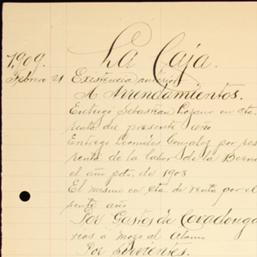 La Caja.
1,909.
Febrero 21 Existencia anterior
A Arrendamientos.
Entrego Sebastian Lozano en cta.
renta del presente año
Entrego Leonides Gonzalez por res
renta de la Labor de la
el año pdo. de 1908
El mismo en cta. de renta por el
sente año
Por Gastos de Covadonga
a mozo al Alamo
Por